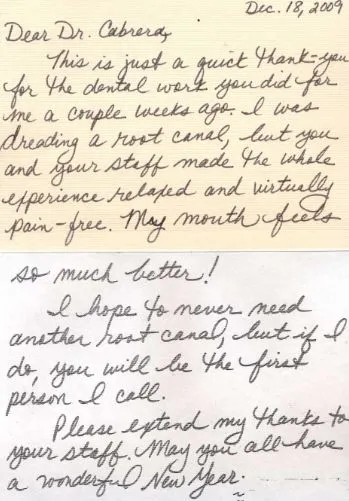 Dec. 18, 2009
Dear Dr. Cabrera,
This is just a quick thank-you
for the dental work you did for
me a couple weeks ago. I was
dreading a root canal, but you
and your staff made the whole
experience relaxed and virtually
pain-free. May mouth feels
so much better!
I hope to never need
another root canal, but if I
do, you will be the first
person I call.
Please extend my thanks to
your staff. May you all have
a wonderful New Year.